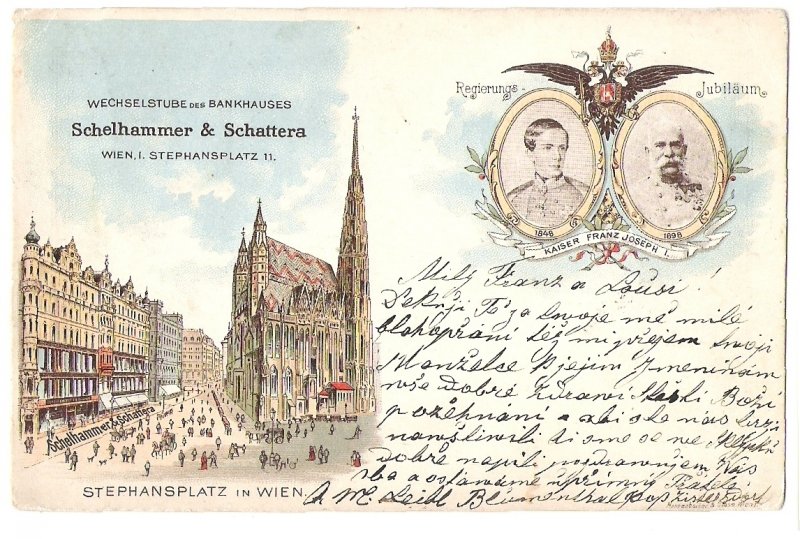 WECHSELSTUBE DES BANKHAUSES
Schelhammer & Schattera
WIEN, I. STEPHANSPLATZ 11.
Regierungs- Jubiläum
1848 1898
KAISER FRANZ JOSEPH I.
Schelhammer & Schattera
STEPHANSPLATZ IN WIEN.
Milý Franz a Lousi!
Dekuji Tě za twoje mě milé
blahopřaní též mi přejem twoji
Manželce k jejim Jmeninám
wše dobré zdrawi Boži
požehnani a abi ste nas
nawštiwili
dobře napili pozdrawujem Wás
oba a ostáwáme upřimny
A. M. Leibl Blumenthal